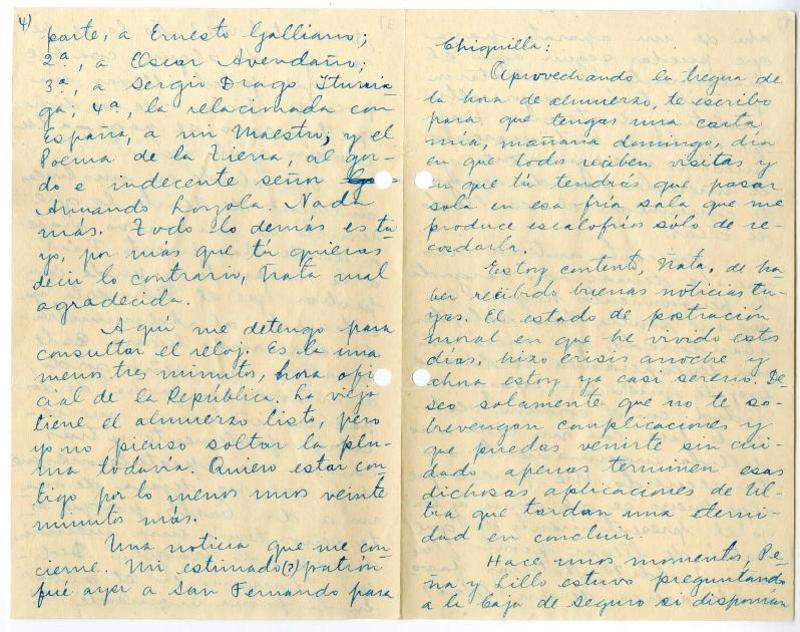 4)
parte, a Ernesto Galliano;
2ª, a Oscar Avendaño;
3ª, a Sergio Drago Iturria
ga; 4ª, la relacionada con
España, a un Maestro; y el
Poema de la Tierra, al gor-
do e indecente señor
Armando Loyola. Nada
más. Todo lo demás es tu
yo, por más que tú quieras
decir lo contrario, Nata mal
agradecida.
Aquí me detengo para
consultar el reloj. Es la una
menos tres minutos, hora ofi
cial de la República. La vieja
tiene el almuerzo listo, pero
yo no pienso soltar la plu-
ma todavía. Quiero estar con
tigo por lo menos unos veinte
minutos más.
Una noticia que me con
cierne. Mi estimado(?) patrón
fué ayer a San Fernando para
Chiquilla:
Aprovechando la tregua de
la hora de almuerzo, te escribo
para que tengas una carta
mía, mañana domingo, día
en que todos reciben visitas y
en que tú tendrás que pasar
sola en esa fría sala que me
produce escalofríos sólo de re-
cordarla.
Estoy contento, Nata, de ha
ber recibido buenas noticias tu-
yas. El estado de postración
moral en que he vivido estos
días, hizo crisis anoche y
ahora estoy ya casi sereno. De-
seo solamente que no te so-
brevengan complicaciones y
que puedas venirte sin cui-
dado apenas terminen esas
dichosas aplicaciones de Ul-
tra que tardan una eterni-
dad en concluir.
Hace unos momentos, Pe-
ña y Lillo estuvo preguntando
a la Caja de Seguro si disponían